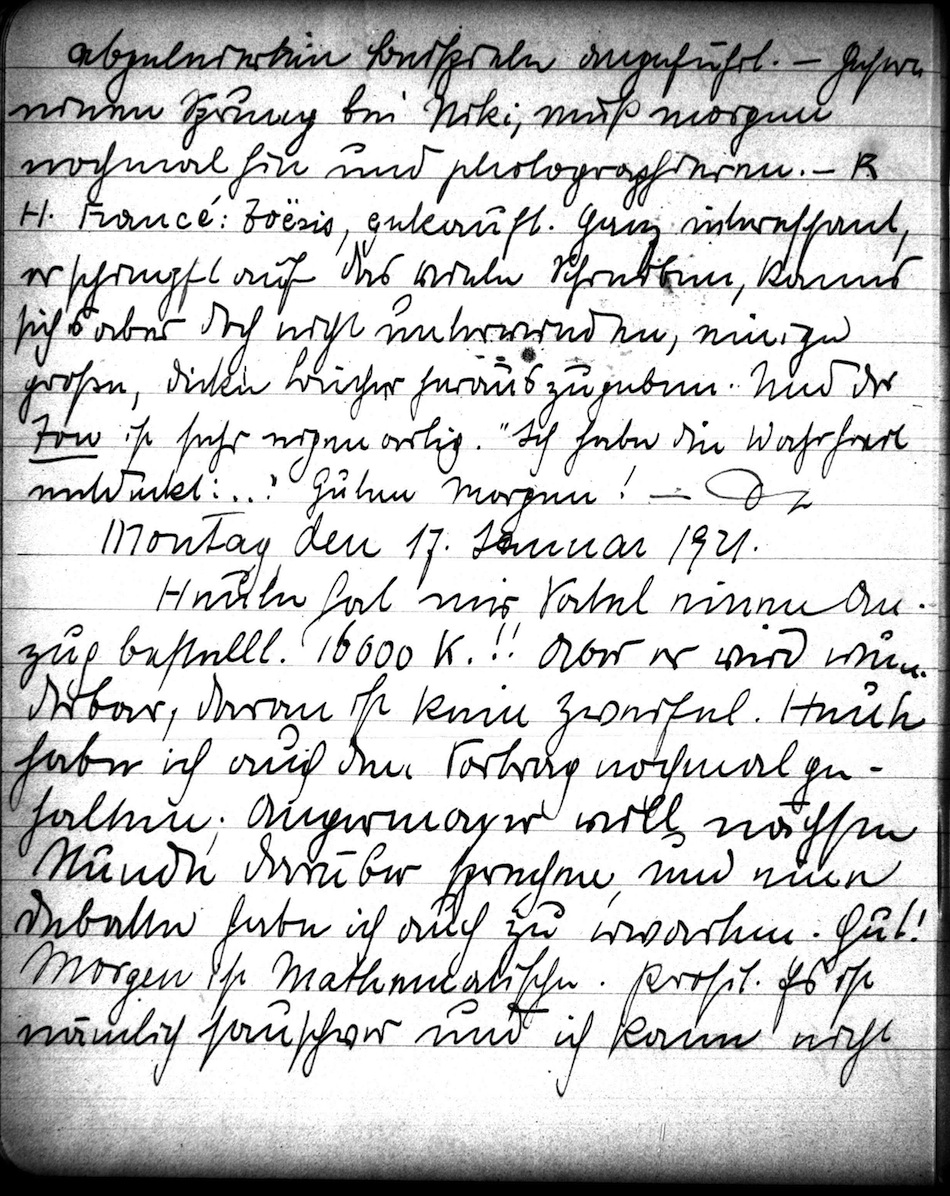 abgeleierten Beispielen angeführt. –
einen Sprung bei Niki, muß morgen
nochmal hin und photographieren. – R
H. Francé: Zoësis, gekauft. Ganz interessant,
er schimpft auf das viele Schreiben, kanns
sich's aber doch nicht unterwinden, einige
große, dicke Bücher herauszugeben. Und der
Ton ist sehr eigenartig. "Ich habe die Wahrheit
entdeckt:..." Guten Morgen! –
Montag den 17. Januar 1921.
Heute hat mir Vatel einen An-
zug bestellt. 16000 K.!! Aber er wird wun-
derbar, daran ist kein Zweifel. Heute
habe ich auch den Vortrag nochmal ge-
halten. Angermayer will nächste
Stunde darüber sprechen und eine
Debatte habe ich auch zu erwarten. Gut!
Morgen ist Mathematische. Prosit. Es ist
nämlich sauschwer und ich kann nicht